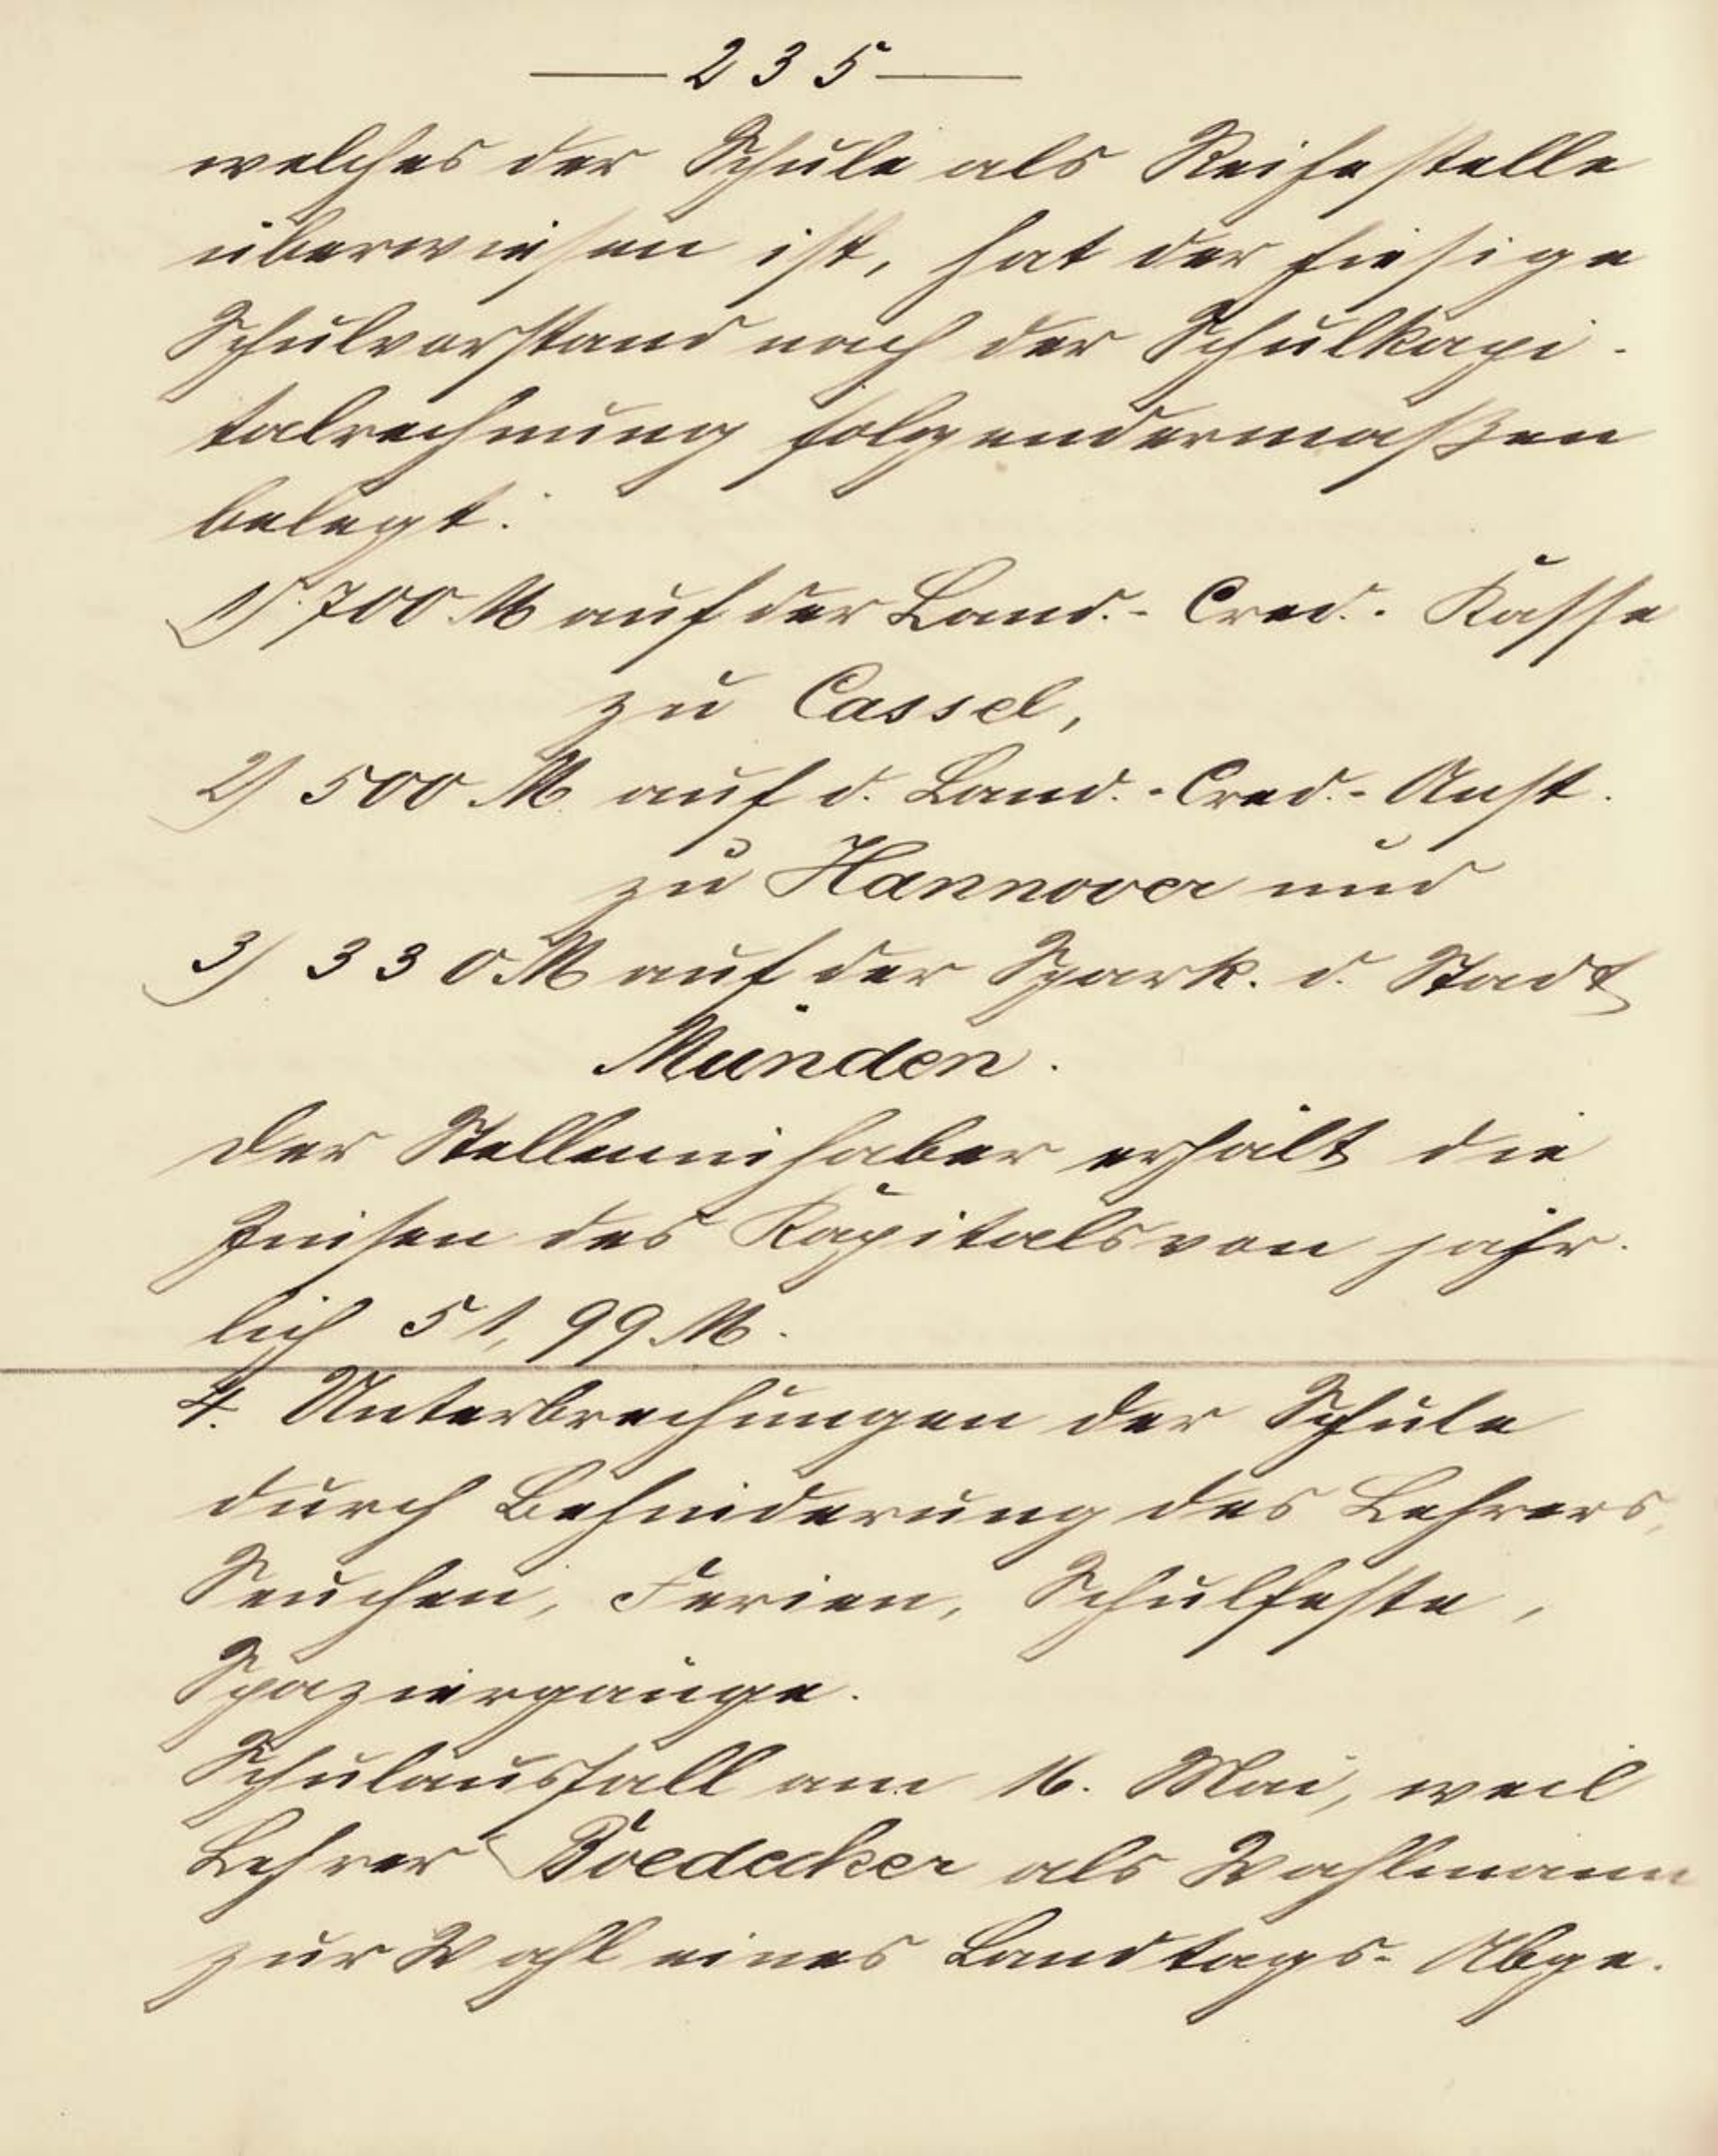 — 235 —
welches der Schule als Reihestelle
überwiesen ist, hat der hiesige
Schulvorstand nach der Schulkapi-
talrechnung folgendermaßen
belegt:
1) 700 M auf der Land.- Cred.- Kasse
zu Cassel,
2) 500 M. auf d. Land.-Cred.-Anst.
zu Hannover und
3) 330 M auf der Spark. d. Stadt
Münden.
Der Stelleninhaber erhält die
Zinsen des Kapitals von jähr-
lich 51,99 M.
4. Unterbrechungen der Schule
durch Behinderung des Lehrers,
Seuchen, Ferien, Schulfeste,
Spaziergänge.
Schulausfall am 16. Mai, weil
Lehrer Boedecker als Wahlmann
zur Wahl eines Landtags-Abge-